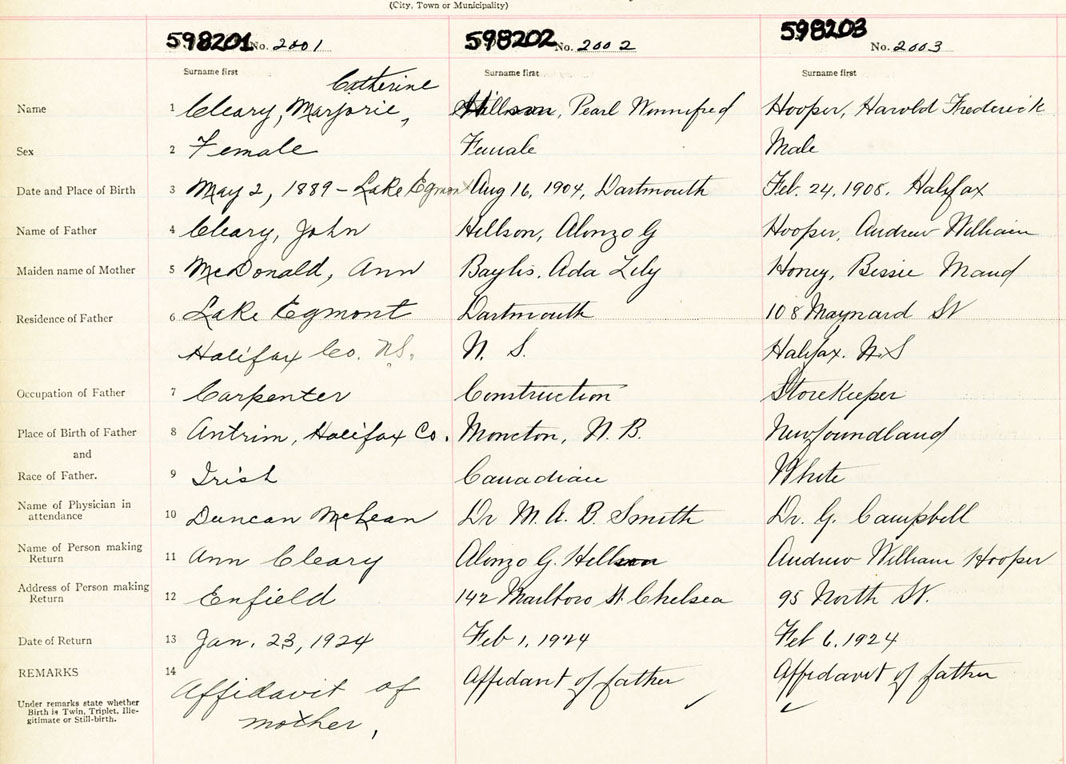 (City, Town or Municipality)
598201 No. 2001 598202 No. 2002 598203 No. 2003
Surname first Surname first Surname first
Catherine
Name 1 Cleary, Marjorie, Hillson, Pearl Winnifred Hooper, Harold Frederick
Sex 2 Female Female Male
Date and Place of Birth 3 May 2, 1889 - Lake Egmont Aug 16, 1904, Dartmouth Feb. 24, 1908. Halifax
Name of Father 4 Cleary, John Hillson, Alonzo G Hooper, Andrew William
Maiden name of Mother 5 McDonald, Ann Baylis, Ada Lily Honey, Bessie Maud
Residence of Father 6 Lake Egmont Dartmouth 108 Maynard St
Halifax Co. N.S. N. S. Halifax. N.S
Occupation of Father 7 Carpenter Construction Storekeeper
Place of Birth of Father 8 Antrim, Halifax Co. Moncton, N.B. Newfoundland
and
Race of Father. 9 Irish Canadian White
Name of Physician in
attendance 10 Duncan McLean Dr M. A. B. Smith Dr. G. Campbell
Name of Person making
Return 11 Ann Cleary Alonzo G. Hillson Andrew William Hooper
Address of Person making
Return 12 Enfield 142 Marlboro St. Chelsea 95 North St.
Date of Return 13 Jan. 23, 1924 Feb 1, 1924 Feb 6, 1924
REMARKS 14 Affidavit of Affidavit of father Affidavit of father
mother,
Under remarks state whether
Birth is Twin, Triplet, Ille-
gitimate or Still-birth.